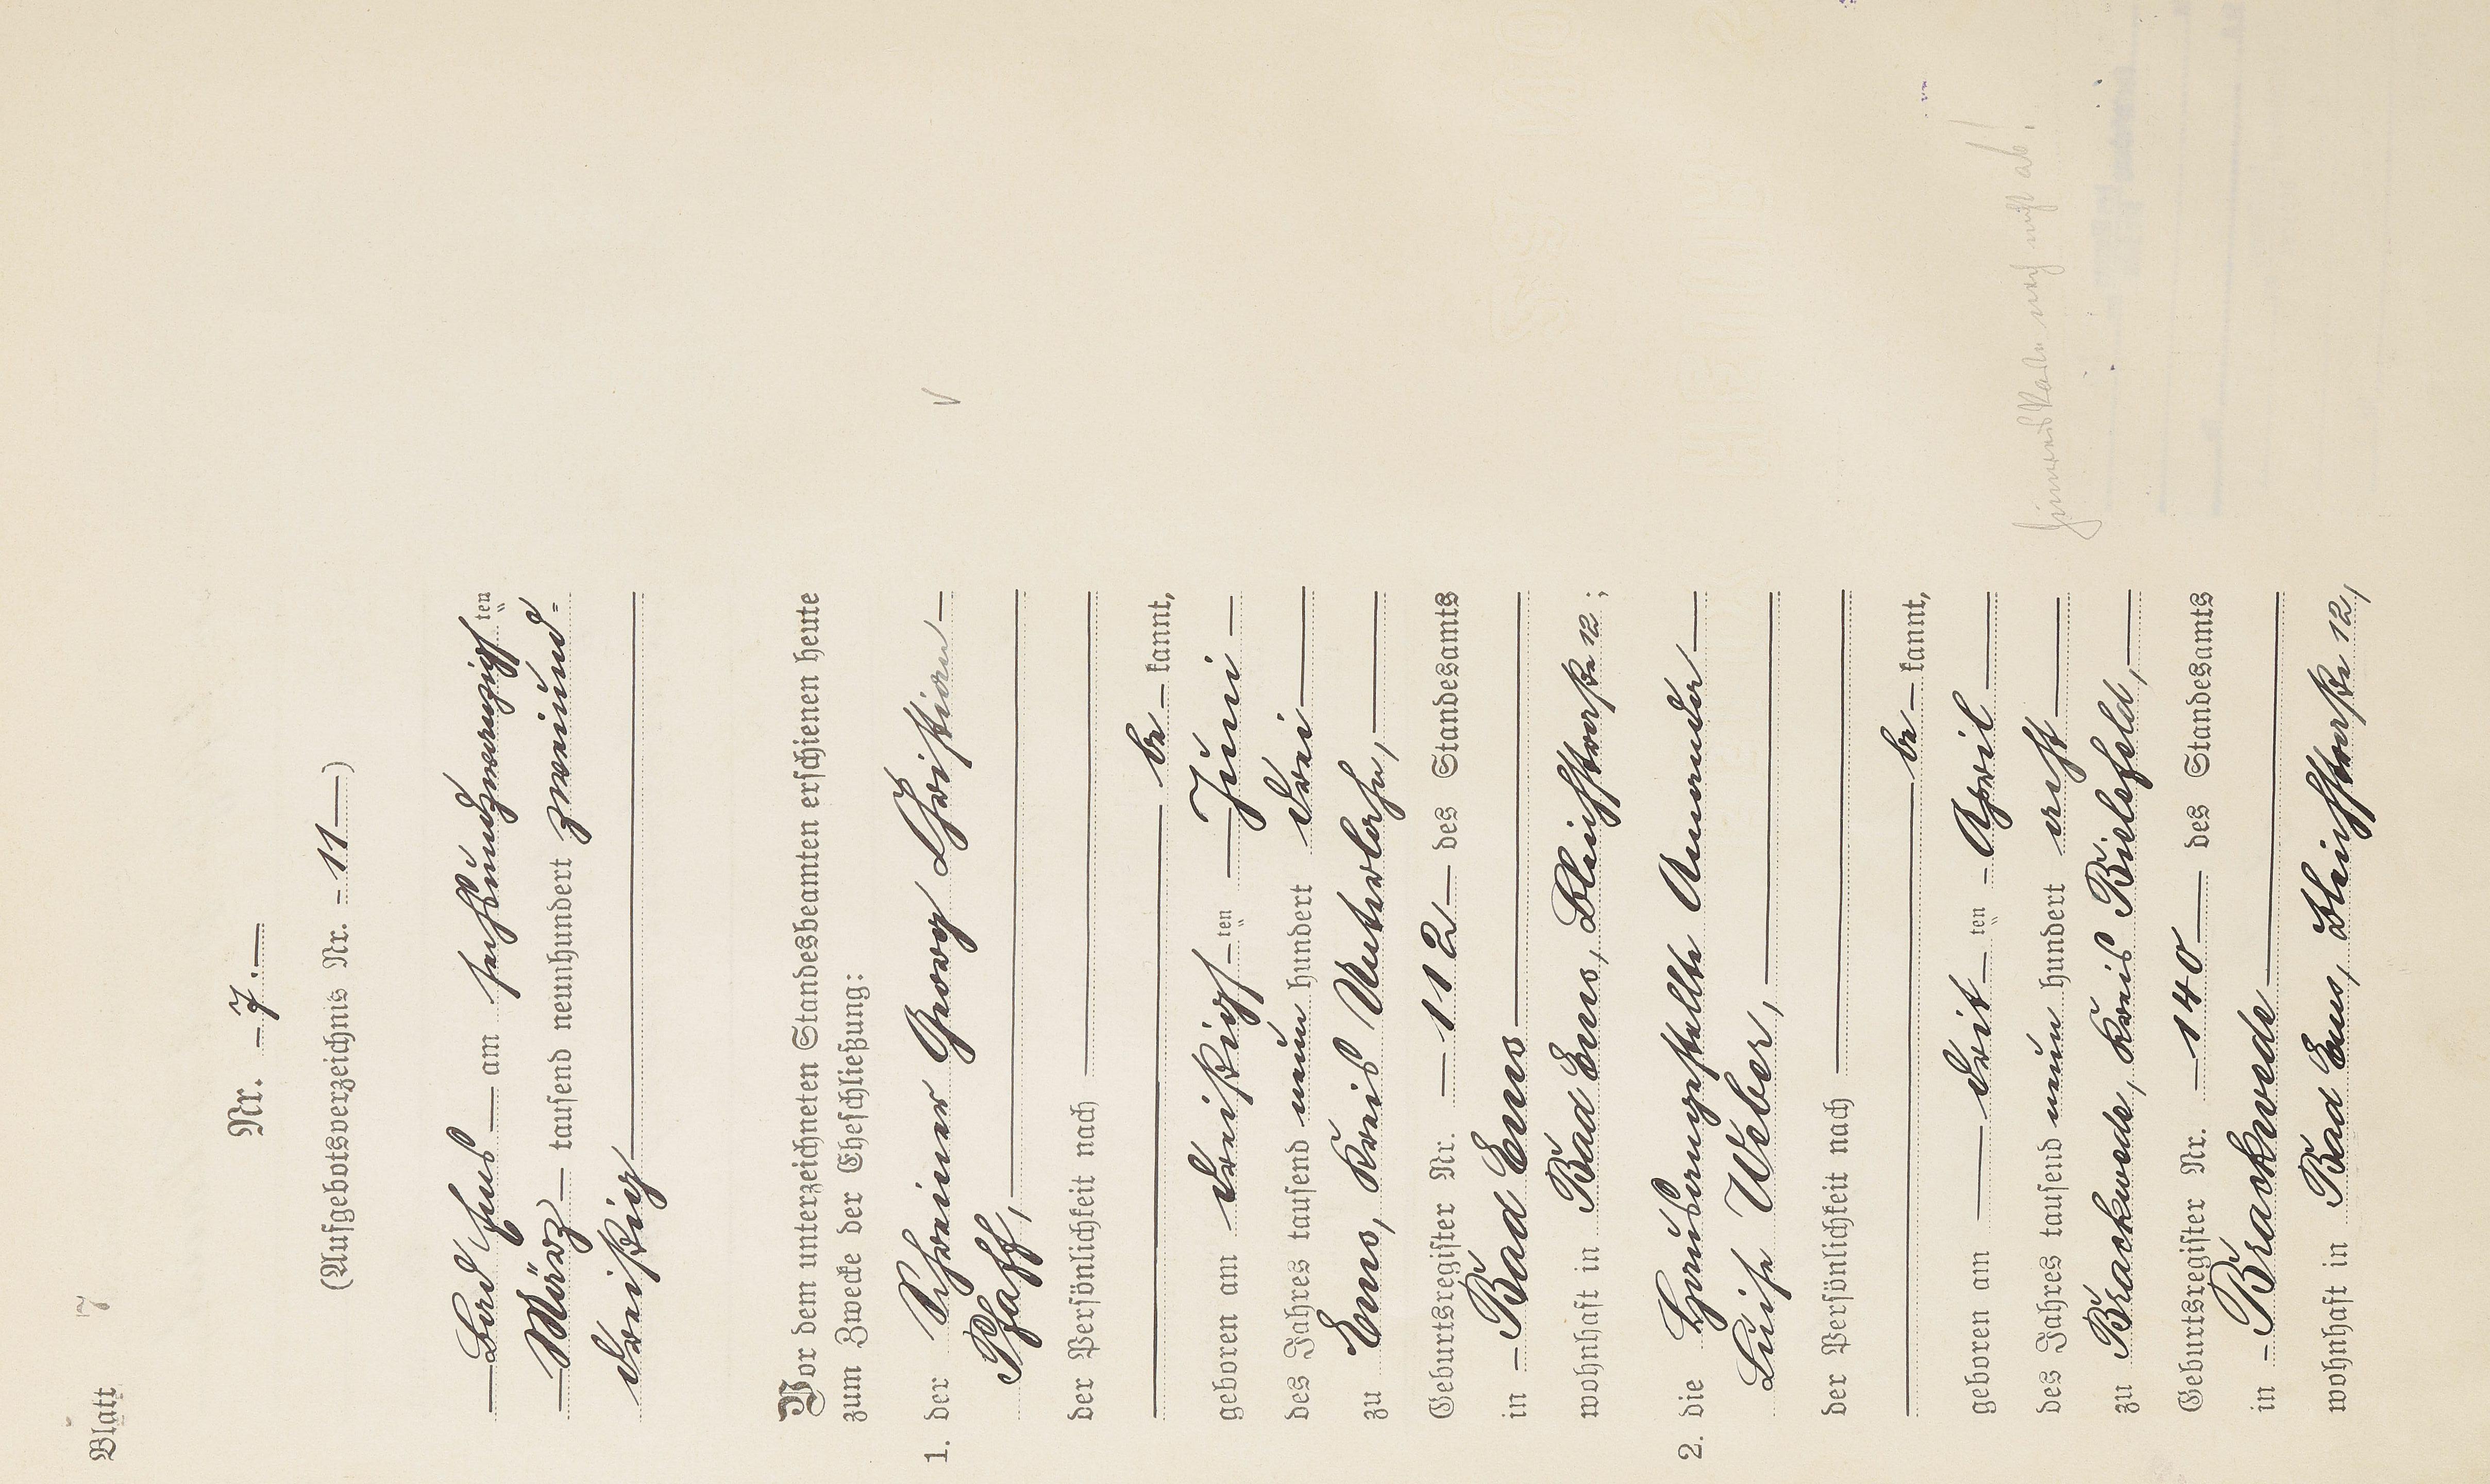 Blatt 7
Nr. 7.
(Aufgebotsverzeichnis Nr. 11)
Bad Ems am sechsundzwanzigsten
März tausend neunhundert zweiund=
dreißig
Vor dem unterzeichneten Standesbeamten erschienen heute
zum Zwecke der Eheschließung:
1. der Schreiner Georg Christian
Pfaff,
der Persönlichkeit nach
be kannt,
geboren am dreißigsten Juni
des Jahres tausend neun hundert drei
zu Ems, Kreis Unterlahn,
Geburtsregister Nr. 112 des Standesamts
in Bad Ems
wohnhaft in Bad Ems, Bleichstraße 12;
2. die Hausangestellte Amanda
Luise Weber,
der Persönlichkeit nach
be kannt,
geboren am dritten April
des Jahres tausend neun hundert acht
zu Brackwede, Kreis Bielefeld,
noch nicht ab!
Geburtsregister Nr. 140 des Standesamts
in Brackwede
wohnhaft in Bad Ems, Bleichstraße 12,